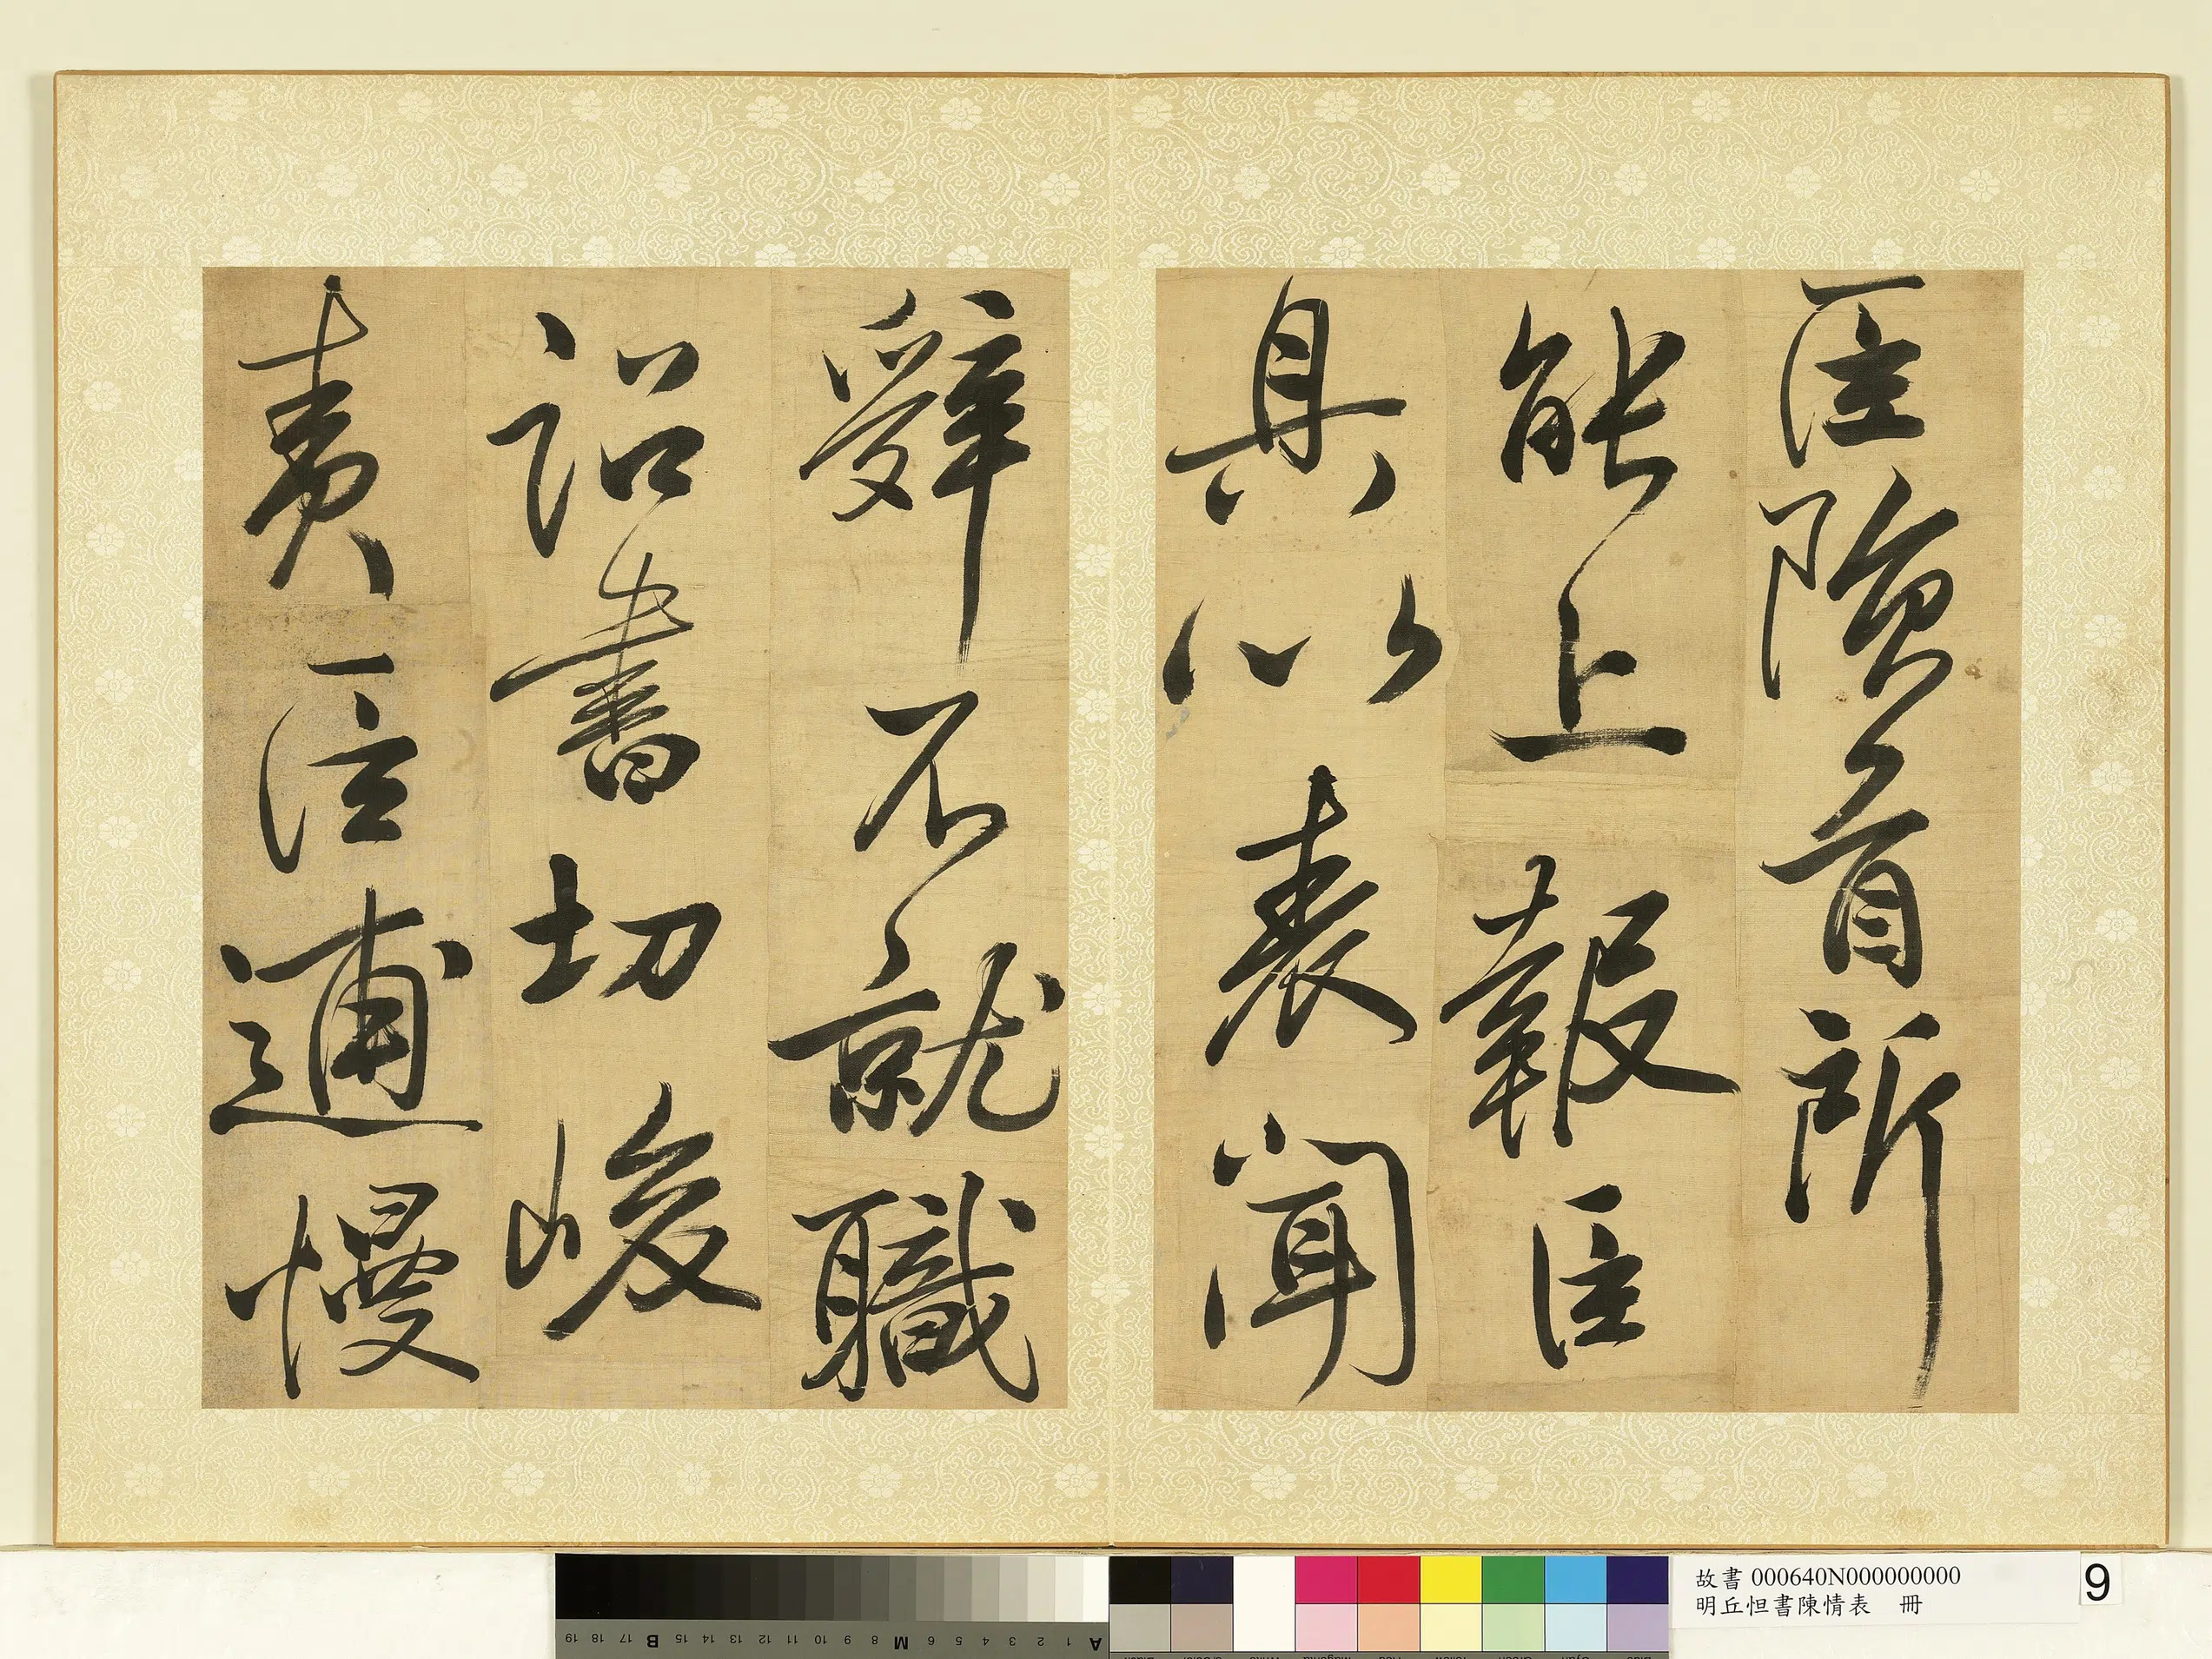 臣隕首所
能上報臣
具以表聞
辭不就職
詔書切峻
責臣逋慢
故書 000640N000000000
明丘怛書陳情表 冊
9
19 18 17 B 15 14 13 12 11 10 9 8 M 6 5 4 3 2 1 A